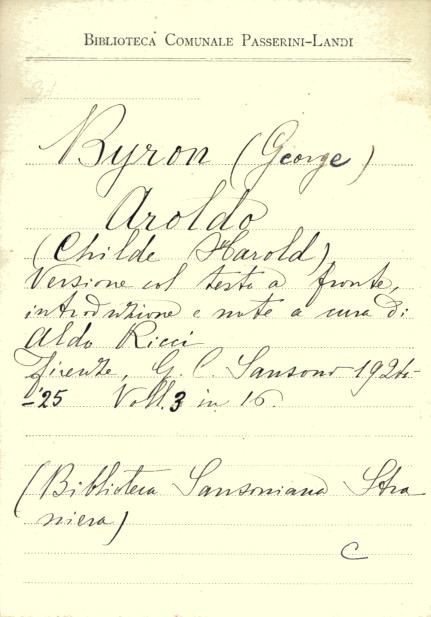 BIBLIOTECA COMUNALE PASSERINI-LANDI
Byron (George)
Aroldo
(Childe Harold)
Versione col testo a fronte,
introduzione e note a cura di
Aldo Ricci
Firenze, G. C. Sansoni 1924-
-'25 Voll. 3 in 16.
(Biblioteca Sansoniana Stra
niera)
C